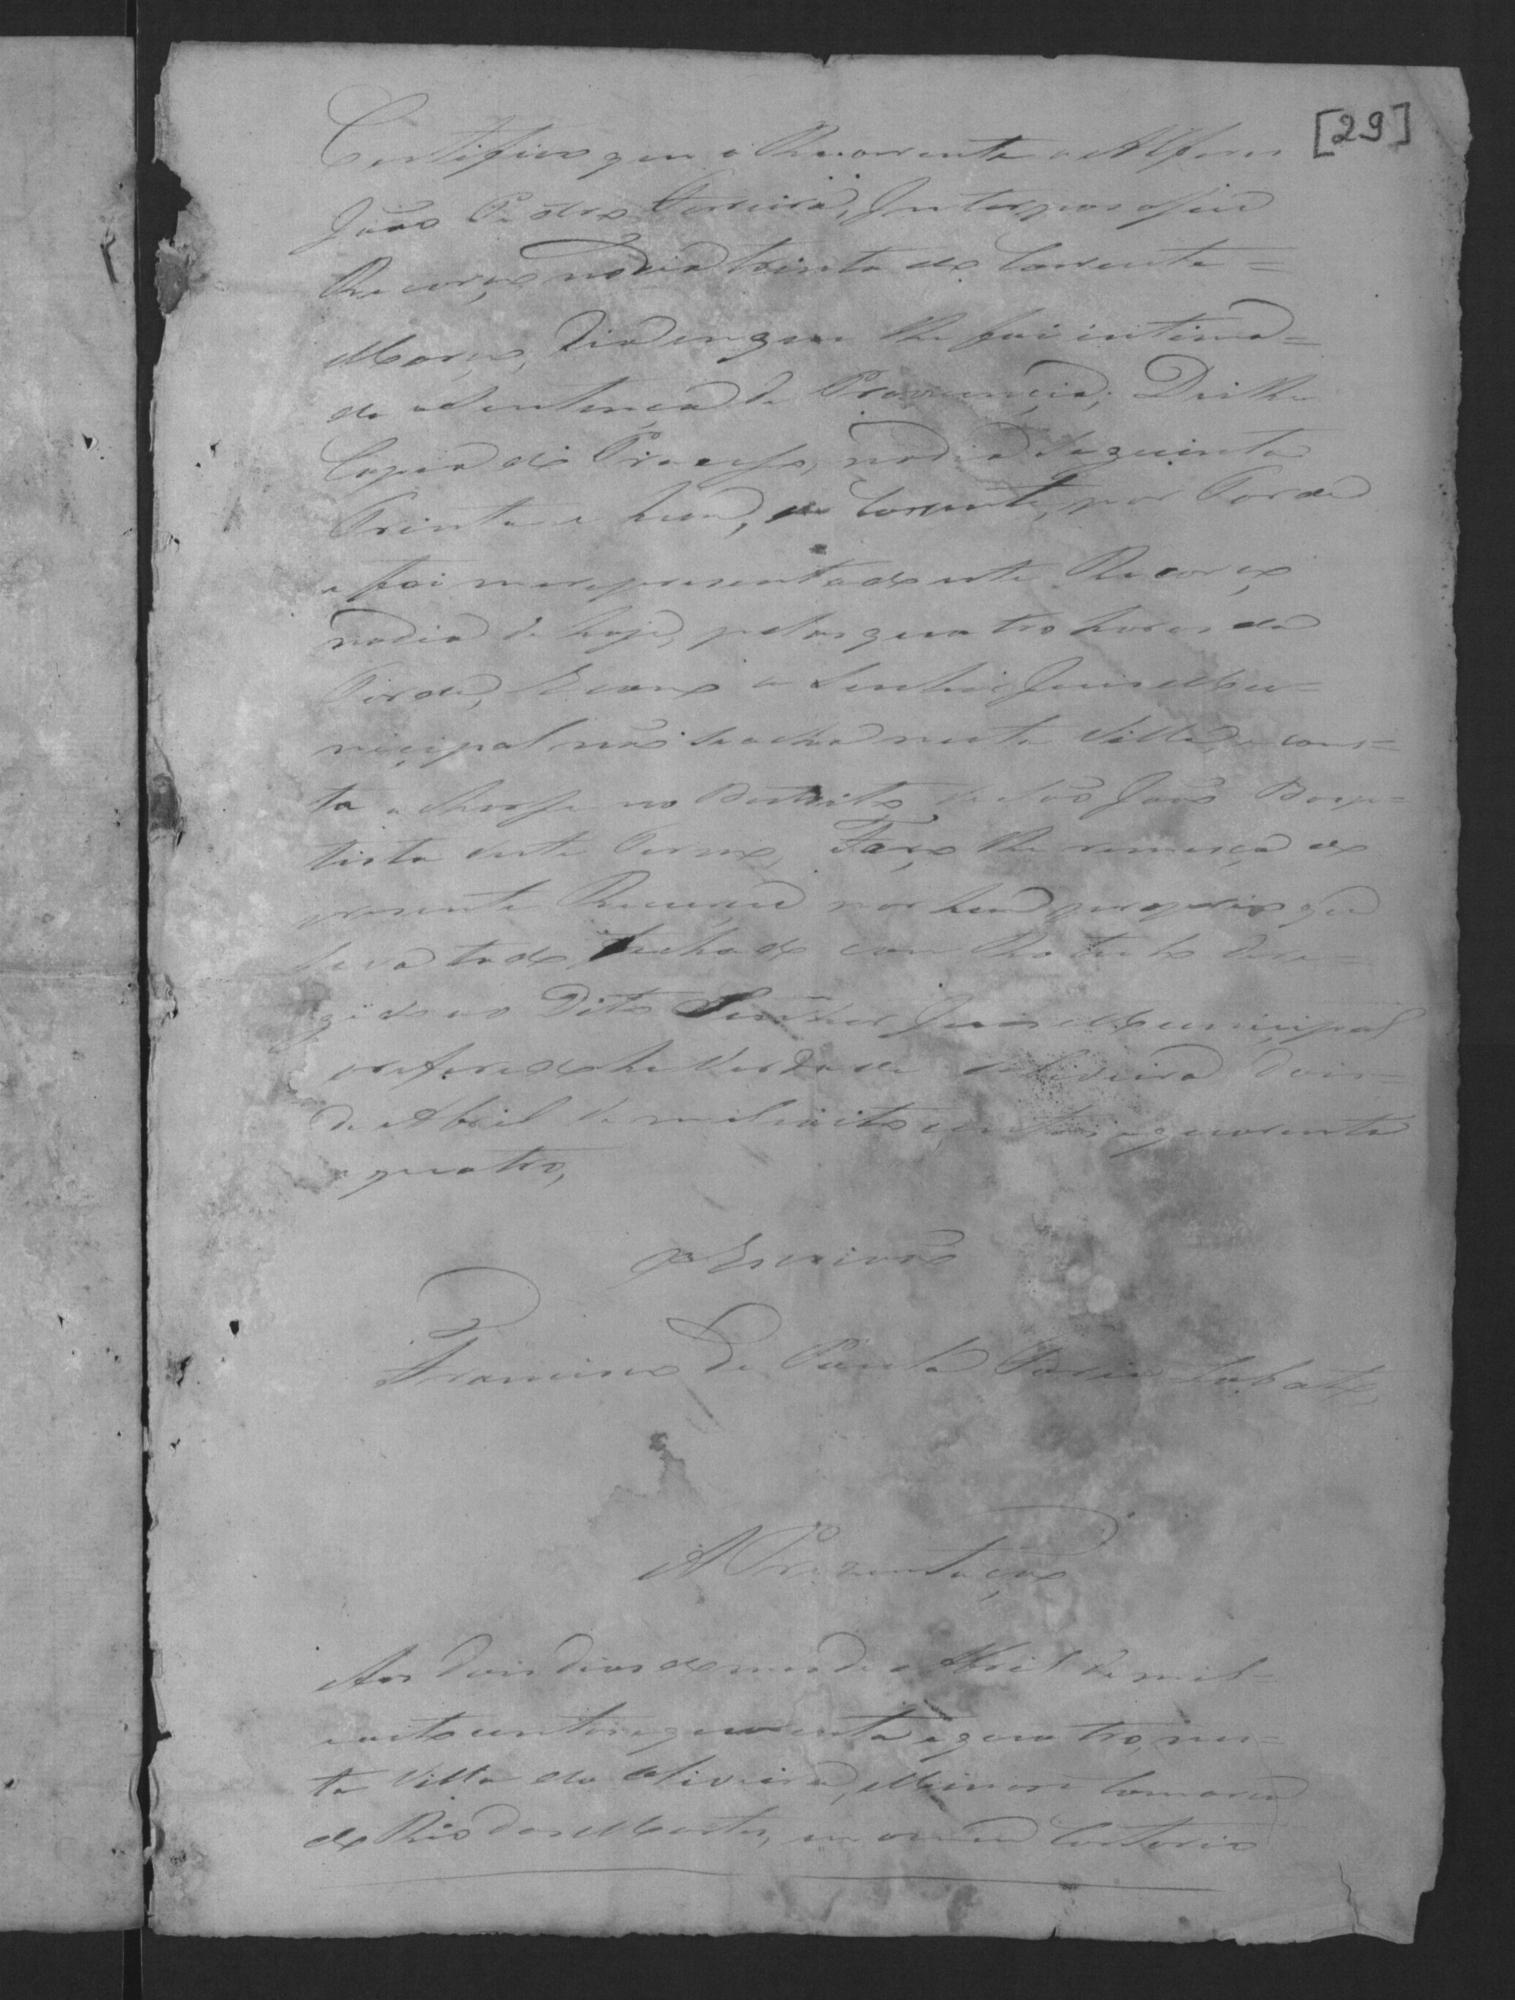 [29]
Certifico que o Recorrente o Alferes
João Pedro Ferreira, Interpos o seu
Recurço no dia trinta do Corrente =
Março, dia em que lhe foi intima=
da a Sentença de Pronuncia; Dei lhe
Copia do Proceço, no dia Seguinte
Trinta e hum, do Corrente, por Tarde
e foi me apresentado este Recurço
no dia de hoje, pelas quatro horas da
Tarde, E como o Senhor Juis Mu=
nicipal não se acha nesta Villa, e cons=
ta acharse no Destrito de São João Bap=
tista deste Termo, Faço lhe remeça do
presente Recurço por hum proprio que
leva tudo fechado com Rotulo diri=
gido ao Dito Senhor Juis Municipal
o referido he Verdade Oliveira dois
de Abril de mil oito centos e quarenta
e quatro,
O Escrivão
Francisco de Paula Lobato
APrezentação
Aos dois dias do mes de Abril de mil
e oito centos e quarenta e quatro, nes=
ta Villa da Oliveira, Minas e Comarca
do Rio das Mortes, em o meu Cartorio